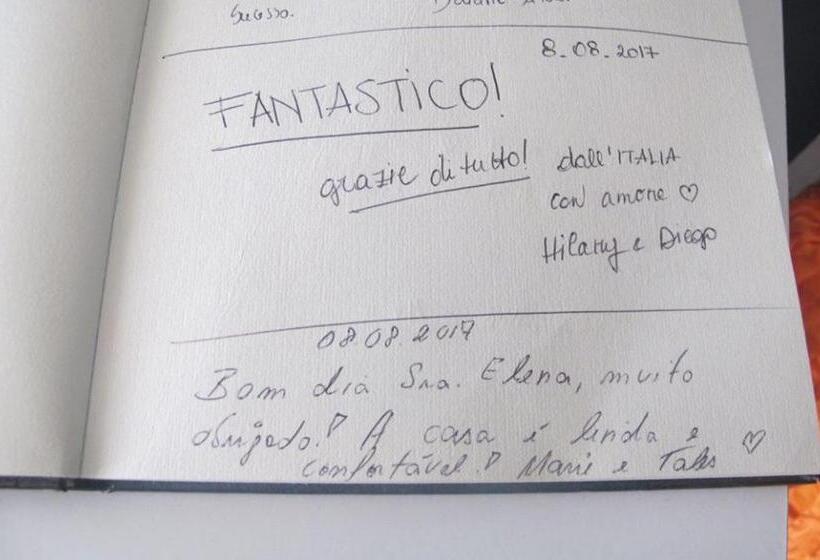 Sucesso.
8.08.2017
FANTASTICO!
grazie di tutto!
dall'ITALIA
con amore ♡
Hilary e Diego
08.08.2017
Bom dia Sra. Elena, muito
obrigado! A casa é linda e ♡
confortável! Marie e Tales